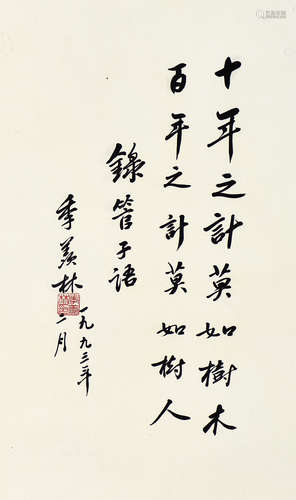 十年之計莫如樹木
百年之計莫如樹人
錄管子語
季羨林
一九九三年
二月